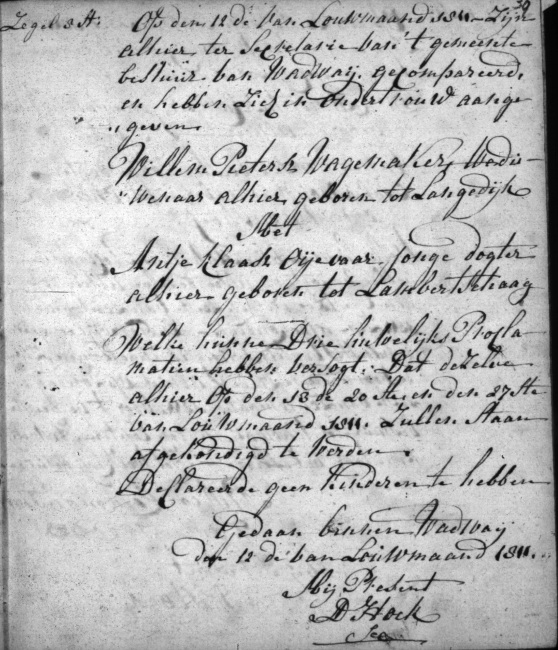 39
Zegel 3 st.
Op den 12 de van Louwmaand 1811. Zijn
alhier ter Secretarie van 't gemeente
bestuur van Wadway. gecompareerd,
en hebben Zich in ondertrouw aange
"geven.
Willem Pietersz Wagemaker,
"wenaar alhier geboren tot Langedijk
Met
Antje Klaasz Oijevaar Jonge dogter
alhier geboren tot Lambertschaag
Welke hunne Drie huwelijks Procla
matien hebben versogt. Dat dezelve
alhier Op den 13 de 20 ste en den 27 ste
van Louwmaand 1811. Zullen Staan
afgekondigd te Werden.
Declareerde geen kinderen te hebben
Gedaan binnen Wadway
den 12 de van Louwmaand 1811.
Mij Present
D Hoek
Sec